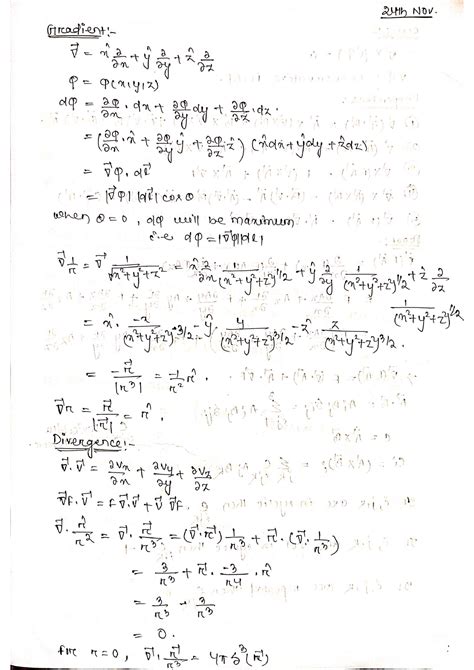 24th Nov.
Gradient:-
∇⃗ = x̂ ∂/∂x + ŷ ∂/∂y + ẑ ∂/∂z
φ = φ(x,y,z)
dφ = ∂φ/∂x · dx + ∂φ/∂y dy + ∂φ/∂z · dz.
= (∂φ/∂x · x̂ + ∂φ/∂y ŷ + ∂φ/∂z ẑ) (x̂dx + ŷdy + ẑdz)
= ∇⃗φ. dl⃗
= |∇⃗φ| |dl⃗| cosθ
when θ=0, dφ will be maximum
i.e dφ = |∇⃗φ||dl|
∇⃗ 1/r = ∇⃗ 1/√(x²+y²+z²) = x̂ ∂/∂x 1/(x²+y²+z²)^1/2 + ŷ ∂/∂y 1/(x²+y²+z²)^1/2 + ẑ ∂/∂z
1/(x²+y²+z²)^1/2
= x̂ · -x/(x²+y²+z²)^-3/2 - ŷ · y/(x²+y²+z²)^3/2 - ẑ · z/(x²+y²+z²)^3/2 .
= -r⃗/|r³| = -1/r² r̂ .
∇⃗r = r⃗/|r⃗| = r̂ .
Divergence:-
∇⃗.V⃗ = ∂Vx/∂x + ∂Vy/∂y + ∂Vz/∂z
∇⃗f.V⃗ = f∇⃗.V⃗ + V⃗ ∇⃗f.
∇⃗. r̂/r² = ∇⃗. r⃗/r³ = (∇⃗.r⃗) 1/r³ + r⃗. (∇⃗. 1/r³)
= 3/r³ + r⃗. -3/r⁴ . r̂
= 3/r³ - 3/r³
= 0.
for r=0, ∇⃗. r⃗/r³ = 4πδ³(r⃗)